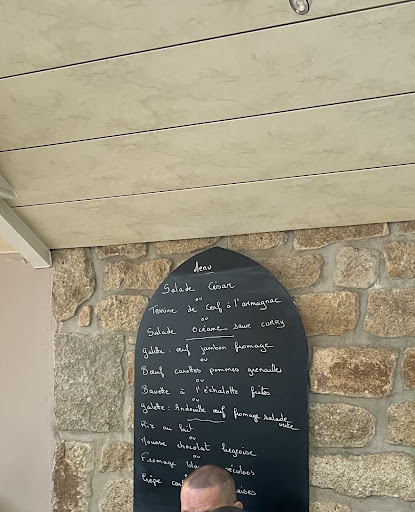 Menu
Salade César
ou
Terrine de Cerf à l'armagnac
ou
Salade Océane sauce curry
galette : œuf jambon fromage
ou
Bœuf carottes pommes grenailles
ou
Bavette à l'échalotte frites
ou
galette : Andouille œuf fromage salade verte
Riz au lait
ou
Mousse chocolat liégeoise
ou
Fromage
Crêpe